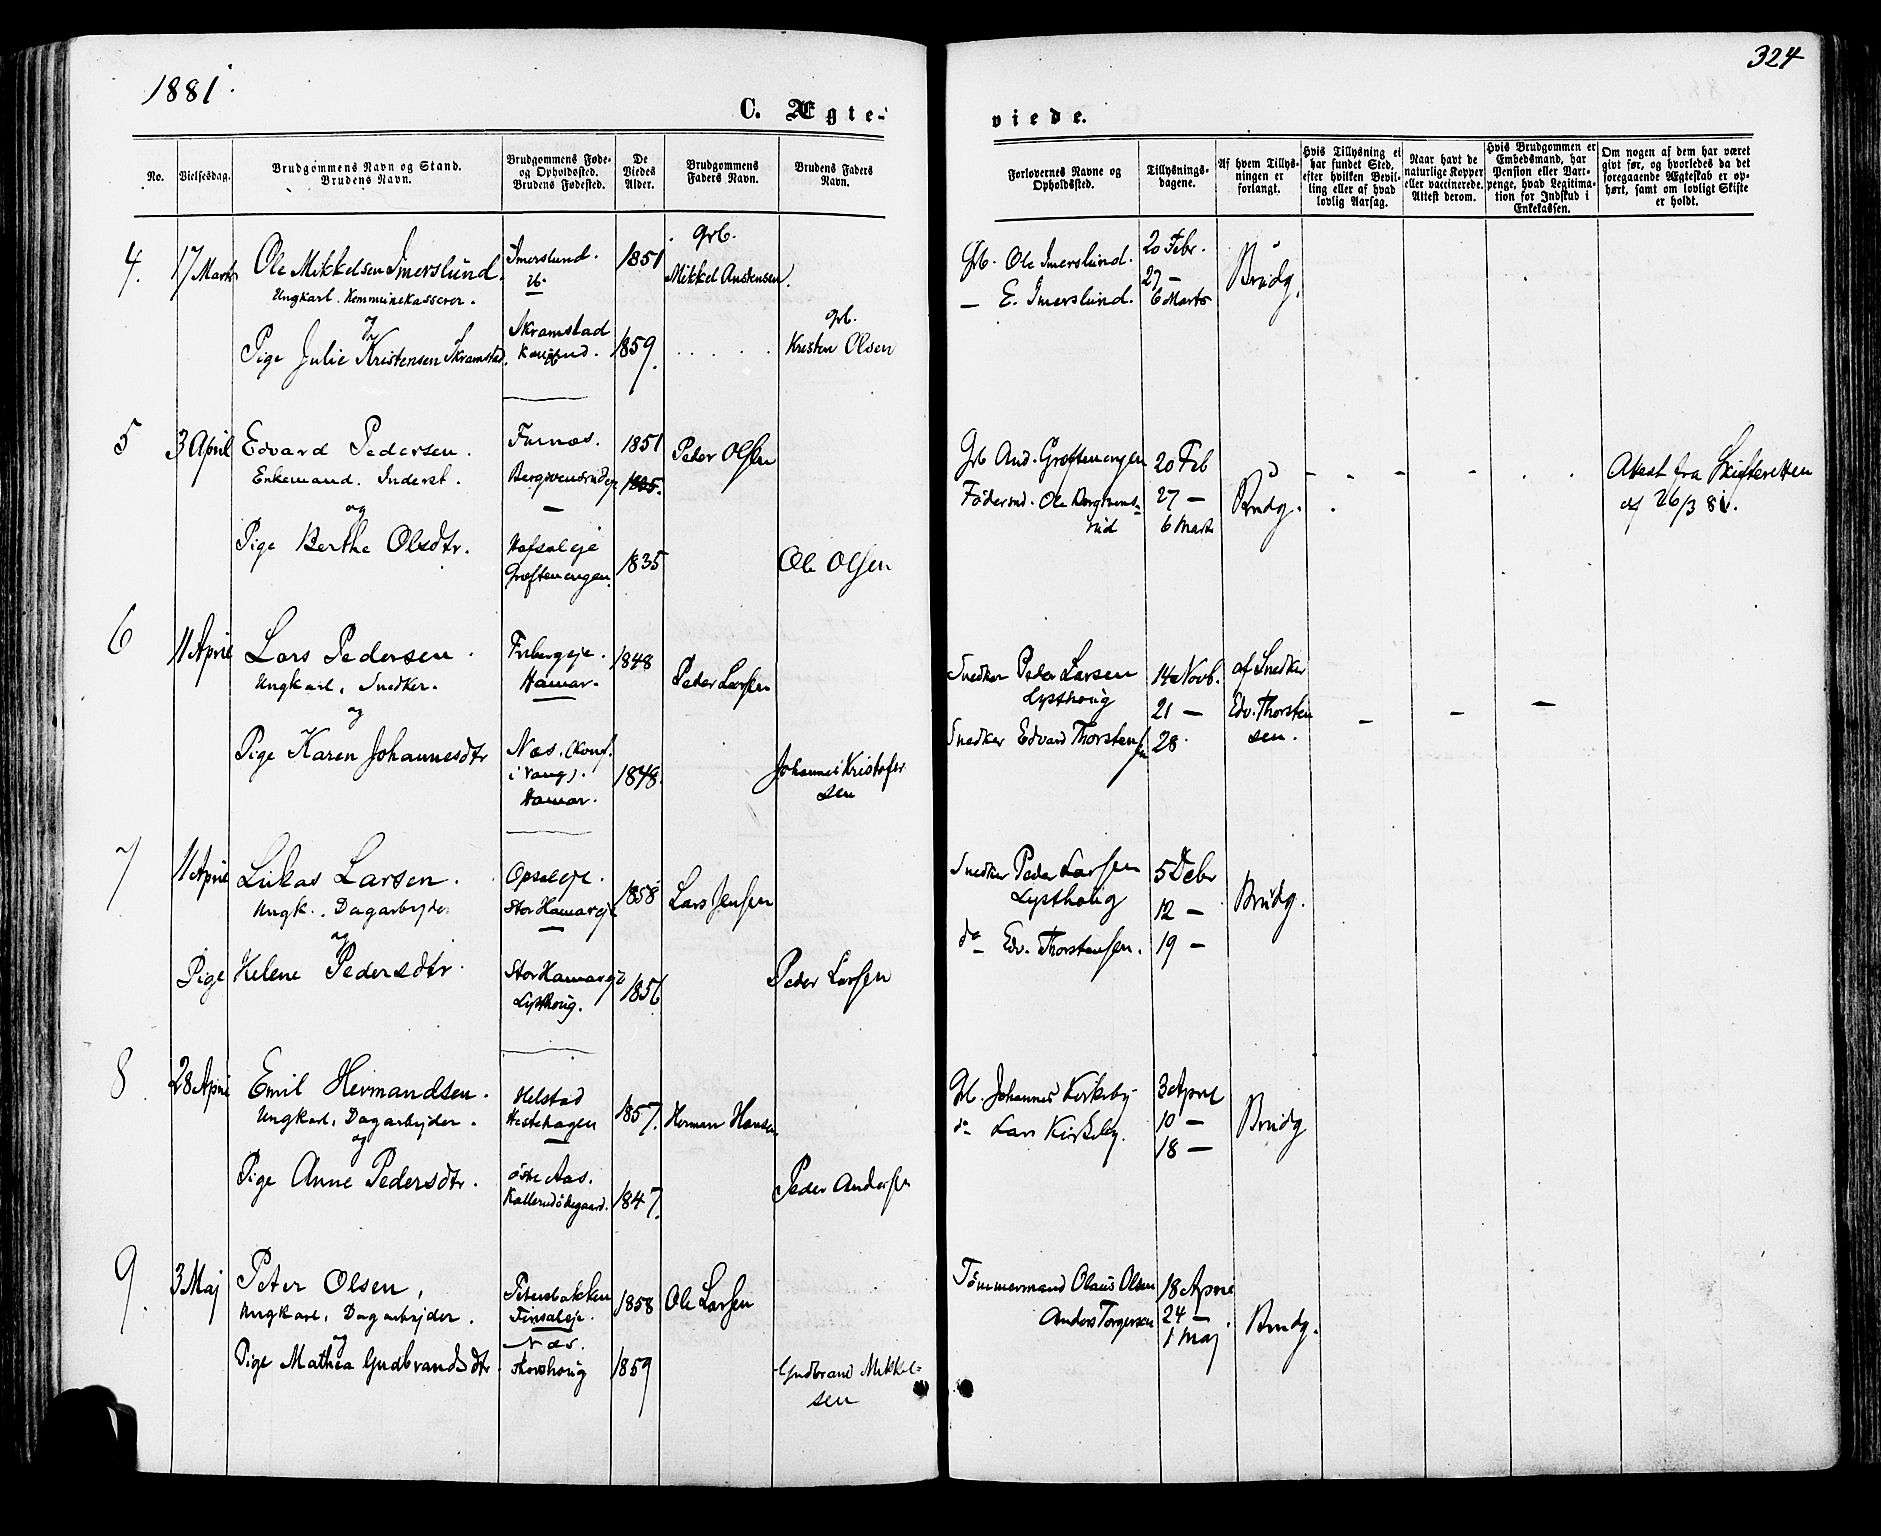 1881.
324
C. Ægte-
viede.
No.
Vielsesdag.
Brudgommens Navn og Stand.
Brudens Navn.
Brudgommens Føde-
og Opholdssted.
Brudens Fødested.
De
Viedes
Alder.
Brudgommens
Faders Navn.
Brudens Faders
Navn.
Forlovernes Navne og
Opholdssted.
Tillysnings-
dagene.
Af hvem Tillys-
ningen er
forlangt.
Hvis Tillysning ei
har fundet Sted,
efter hvilken Bevil-
ling eller af hvad
lovlig Aarsag.
Naar havt de
naturlige Kopper
eller vaccinerede.
Attest derom.
Hvis Brudgommen er
Embedsmand, har
Pension eller Vart-
penge, hvad Legitima-
tion for Indskud i
Enkekassen.
Om nogen af dem har været
givt før, og hvorledes da det
foregaaende Ægteskab er op-
hørt, samt om lovligt Skifte
er holdt.
4. 17 Marts
Ole Mikkelsen Imerslund.
Ungkarl. Kommunekasserer.
og
Pige Julie Kristensen Skramstad.
Imerslund.
ib.
Skramstad
1851
1859.
Grb.
Mikkel Austensen.
Grb.
Kristen Olsen
Grb. Ole Imerslund.
— E. Imerslund.
20 Febr.
27 —
6 Marts
Brudg.
5 3 April
Edvard Pedersen.
Enkemand. Inderst.
og
Pige Berthe Olsdtr.
Furnæs.
Hofsaleje
Grøftenengen.
1851
1835
Peder Olsen
Ole Olsen
Grb. And. Grøftenengen
20 Feb
27 —
6 Marts
Brudg.
Attest fra Skifteretten
af 26/3 81.
6 11 April
Lars Pedersen.
Ungkarl, Snedker.
og
Pige Karen Johannesdtr
Frebergeje.
Hamar.
Næs. (Konf.
i Vang).
Hamar.
1848
1848.
Peder Larsen
Johannes Kristofer
sen
Snedker Peder Larsen
Lysthoug
Snedker Edvard Thorstensen
14 Novb.
21 —
28.
af Snedker
Edv. Thorsten
sen.
7 11 April
Lukas Larsen.
Ungk., Dagarbejder
og
Pige Helene Pedersdtr.
Opsaleje.
Stor Hamareje
Stor Hamareje
Lysthoug.
1858
1856
Lars Jensen
Peder Larsen
Snedker Peder Larsen
Lysthoug
do Edv. Thorstensen.
5 Debr
12 —
19 —
Brudg.
8. 28 April
Emil Hermandsen.
Ungkarl, Dagarbejder.
og
Pige Anne Pedersdtr.
Helstad
Hestehagen
Østre Aas.
1857.
1847.
Herman Hansen
Peder Andersen
Grb. Johannes Kirkeby
do Lars Kirkeby.
3 April
10 —
18 —
Brudg
9. 3 Maj
Peter Olsen,
Ungkarl, Dagarbejder.
og
Pige Mathea Gudbrandsdtr.
Petersbakken
Finsaleje.
Næs.
1858
1859
Ole Larsen
Gudbrand Mikkel-
sen
Tømmermand Olaus Olsen
Anders Torgersen
18 April
24 —
1 Maj
Brudg.